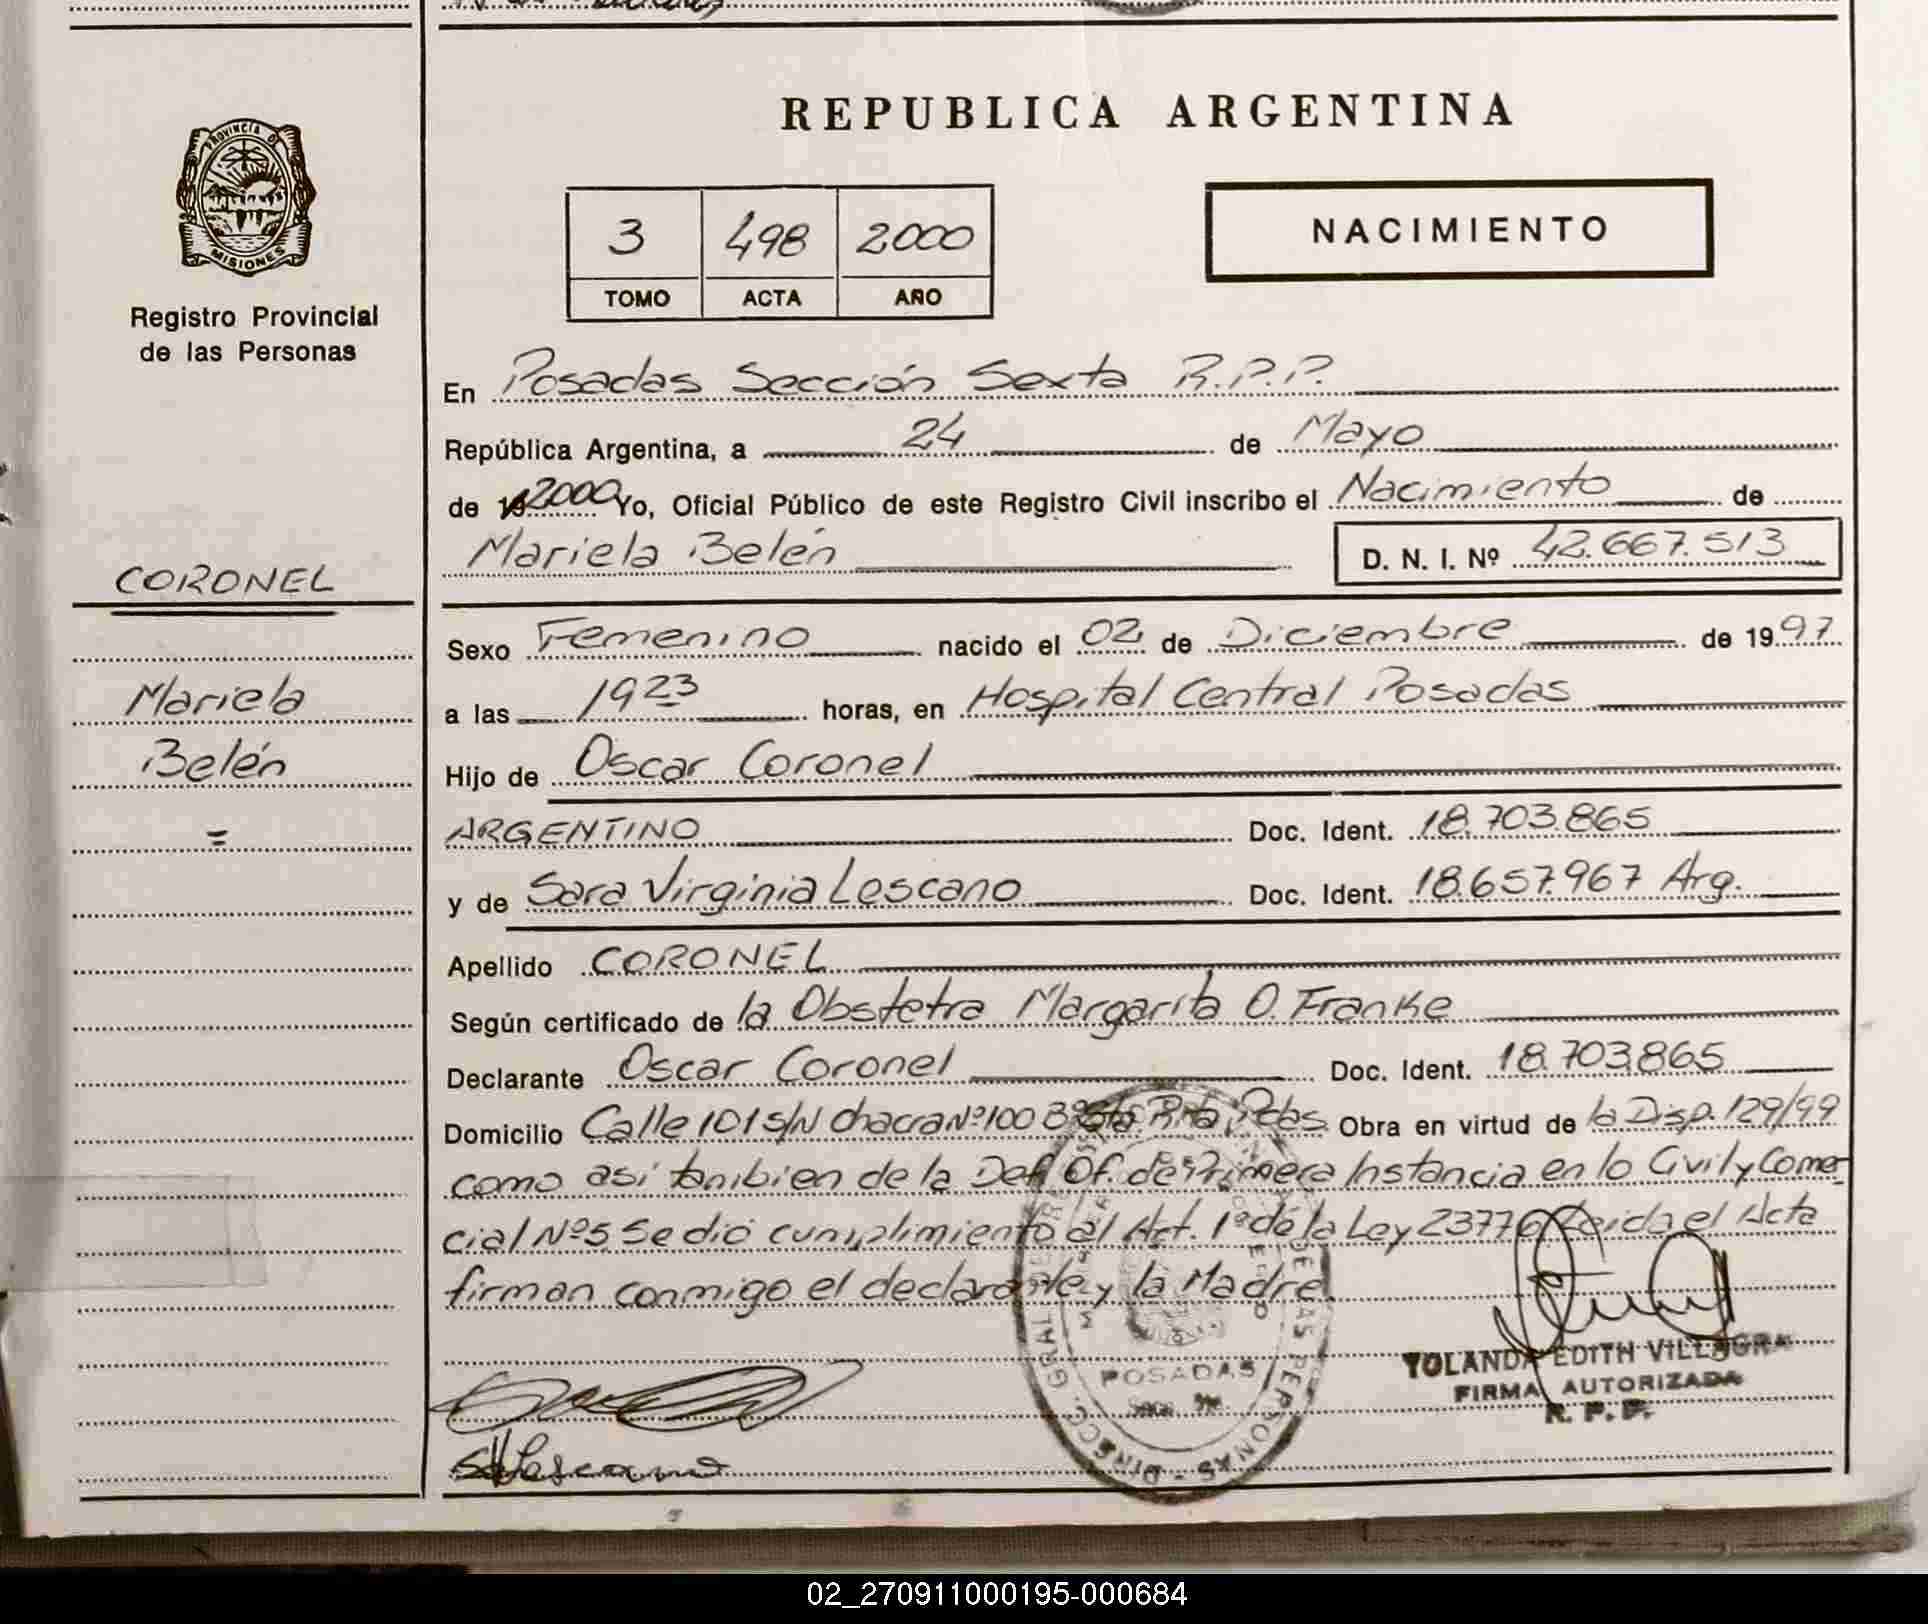 REPUBLICA ARGENTINA
PROVINCIA D
MISIONES
Registro Provincial
de las Personas
3 498 2000
TOMO ACTA AÑO
NACIMIENTO
En Posadas Sección Sexta R.P.P.
República Argentina, a 24 de Mayo
de 19 2000 Yo, Oficial Público de este Registro Civil inscribo el Nacimiento de
Mariela Belén D. N. I. Nº 42.667.513
CORONEL
Mariela
Belén
=
Sexo Femenino nacido el 02 de Diciembre de 1997
a las 1923 horas, en Hospital Central Posadas
Hijo de Oscar Coronel
ARGENTINO Doc. Ident. 18.703.865
y de Sara Virginia Lescano Doc. Ident. 18.657.967 Arg.
Apellido CORONEL
Según certificado de la Obstetra Margarita O. Franke
Declarante Oscar Coronel Doc. Ident. 18.703.865
Domicilio Calle 101 S/N chacra Nº 100 Bº Sta Rita Pdas Obra en virtud de la Disp. 129/99
como así tambien de la Def Of. de Primera Instancia en lo Civil y Comer-
cial Nº5, Se dió cumplimiento al Art. 1º de la Ley 23776 Leida el Acta
firman conmigo el declarante y la Madre.
POSADAS
YOLANDA EDITH VILLAGRA
FIRMA AUTORIZADA
R. P. P.
SVLescano
02_270911000195-000684